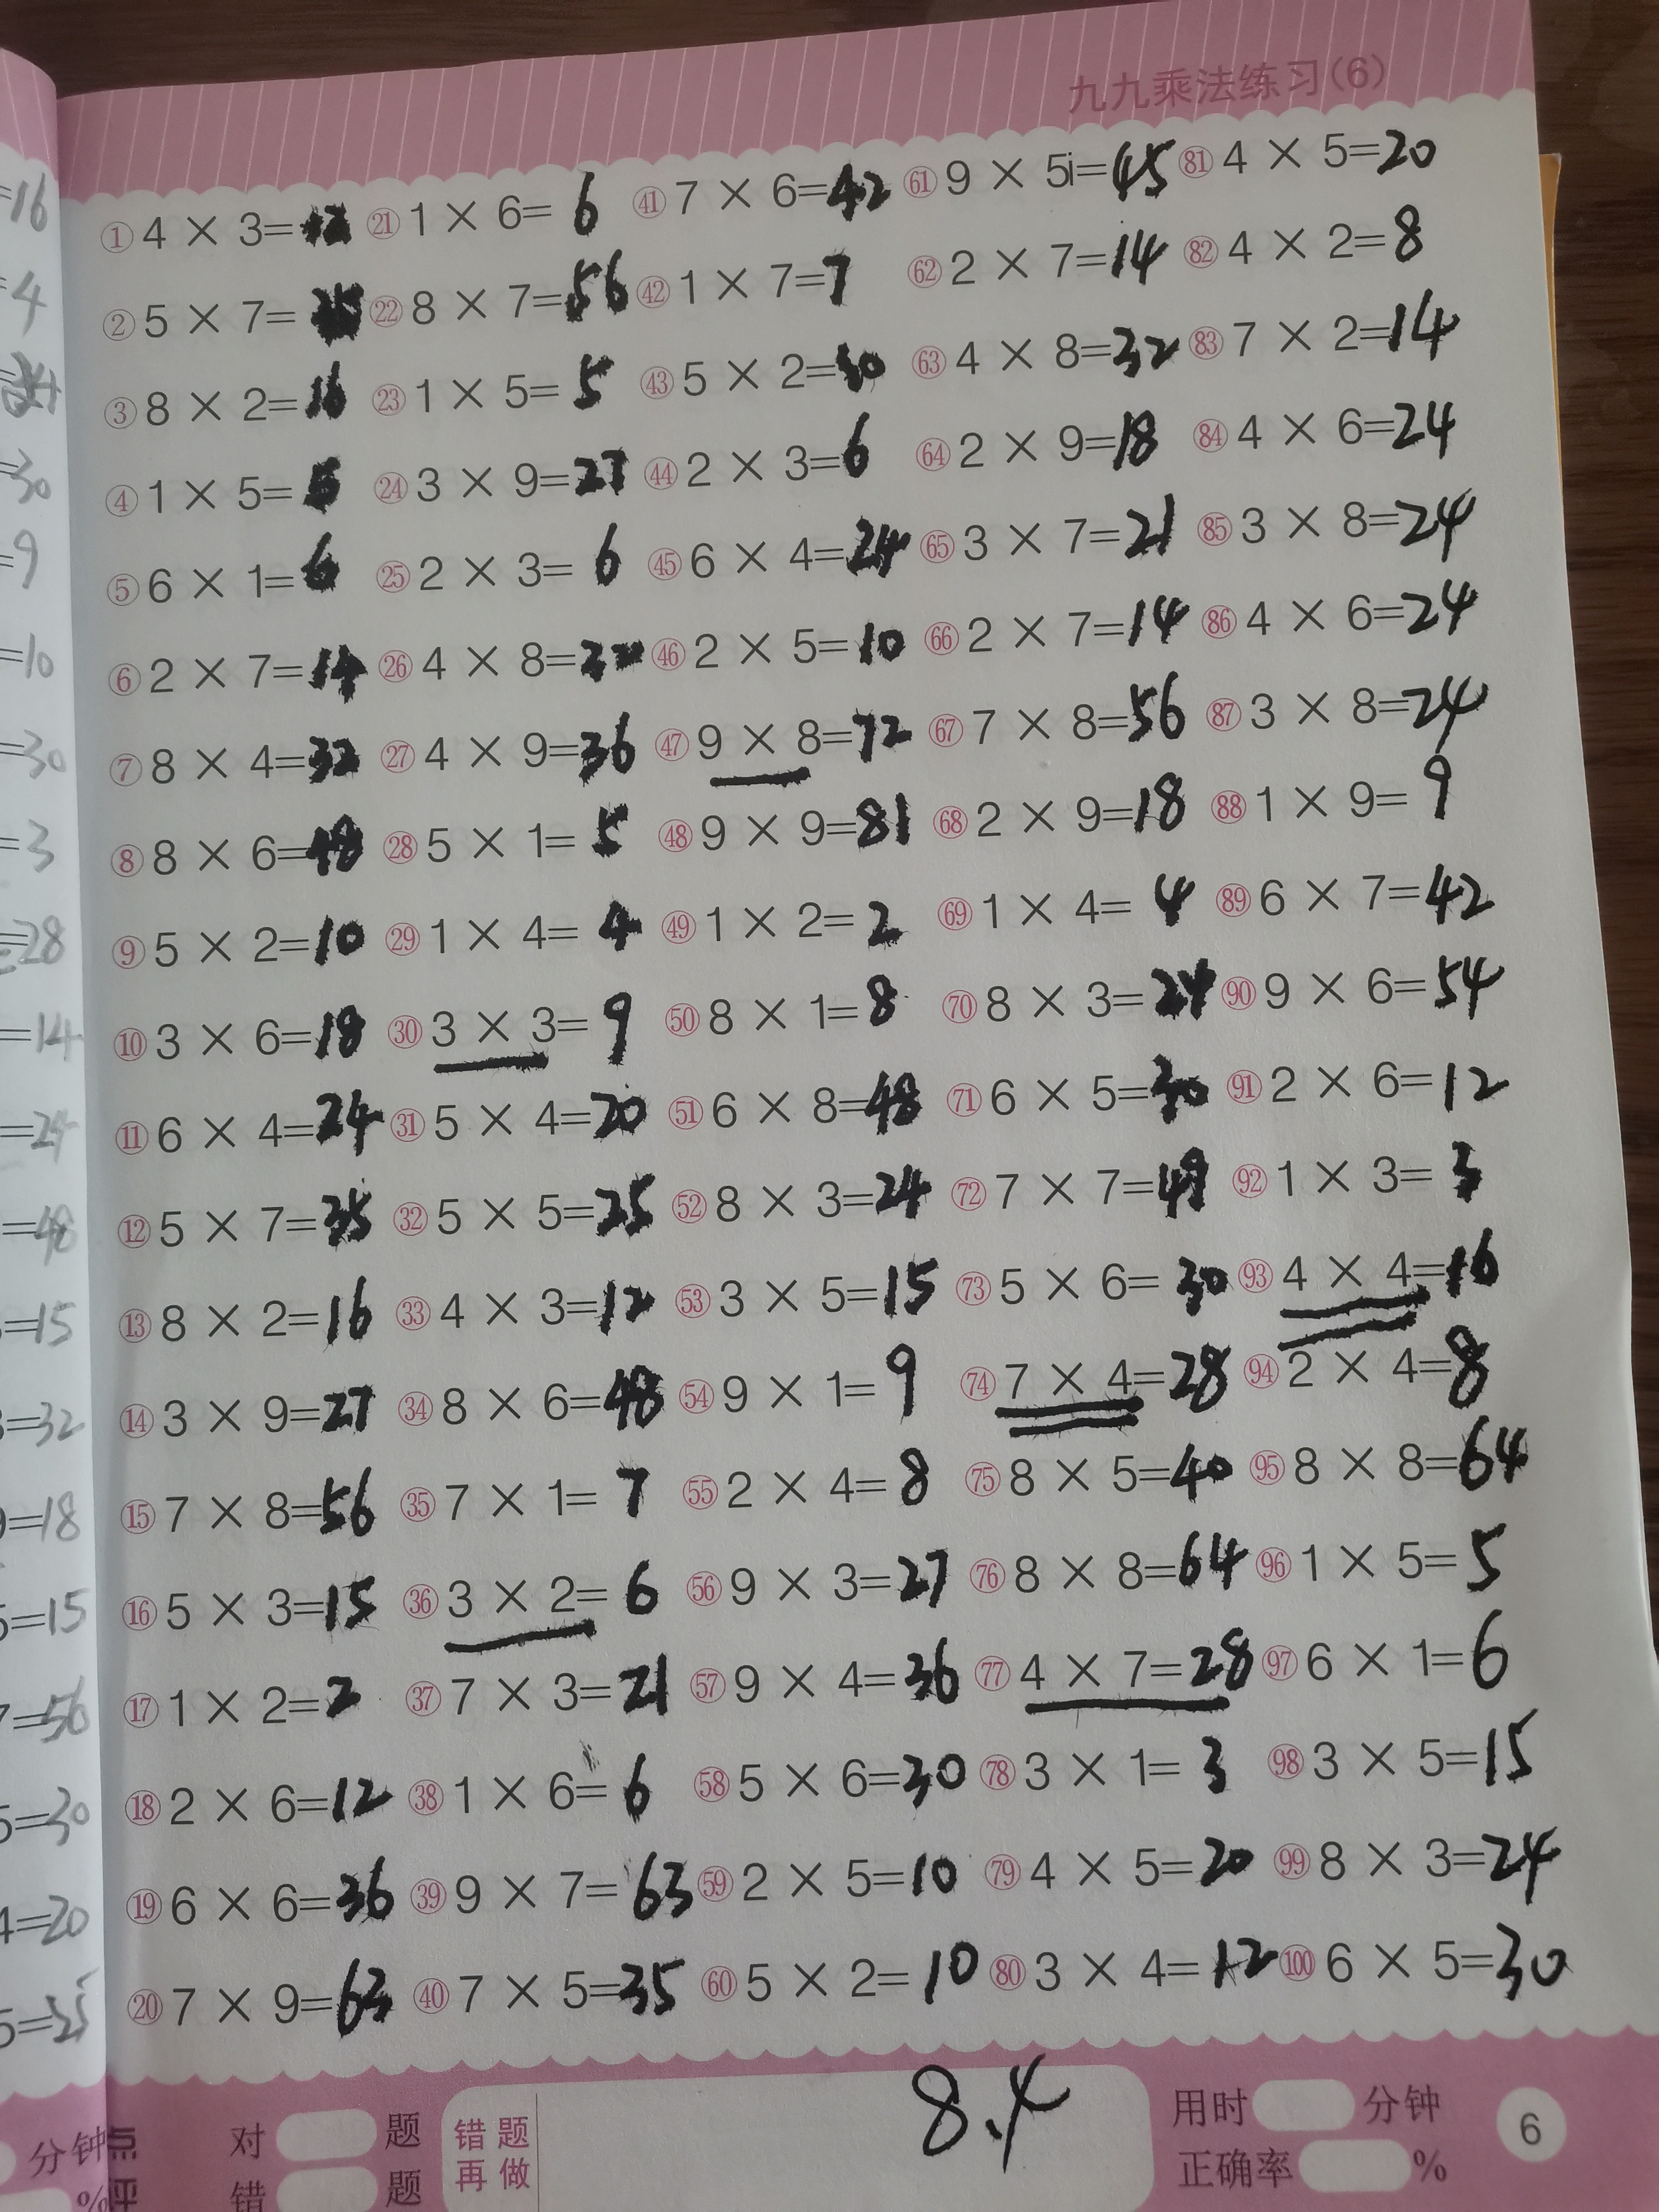 九九乘法练习(6)
①4 × 3=12 ㉑1 × 6=6 ㊶7 × 6=42 61 9 × 5i=45 81 4 × 5=20
②5 × 7=35 ㉒8 × 7=56 ㊷1 × 7=7 62 2 × 7=14 82 4 × 2=8
③8 × 2=16 ㉓1 × 5=5 ㊸5 × 2= 63 4 × 8=32 83 7 × 2=14
④1 × 5=5 ㉔3 × 9=27 ㊹2 × 3=6 64 2 × 9=18 84 4 × 6=24
⑤6 × 1=6 ㉕2 × 3=6 ㊺6 × 4=24 65 3 × 7=21 85 3 × 8=24
⑥2 × 7=14 ㉖4 × 8=32 ㊻2 × 5=10 66 2 × 7=14 86 4 × 6=24
⑦8 × 4=32 ㉗4 × 9=36 ㊼9 × 8=72 67 7 × 8=56 87 3 × 8=24
⑧8 × 6=48 ㉘5 × 1=5 ㊽9 × 9=81 68 2 × 9=18 88 1 × 9=9
⑨5 × 2=10 ㉙1 × 4=4 ㊾1 × 2=2 69 1 × 4=4 89 6 × 7=42
⑩3 × 6=18 ㉚3 × 3=9 ㊿8 × 1=8 70 8 × 3=24 90 9 × 6=54
⑪6 × 4=24 ㉛5 × 4=20 51 6 × 8=48 71 6 × 5=30 91 2 × 6=12
⑫5 × 7=35 ㉜5 × 5=25 52 8 × 3=24 72 7 × 7=49 92 1 × 3=3
⑬8 × 2=16 ㉝4 × 3=12 53 3 × 5=15 73 5 × 6=30 93 4 × 4=16
⑭3 × 9=27 ㉞8 × 6=48 54 9 × 1=9 74 7 × 4=28 94 2 × 4=8
⑮7 × 8=56 ㉟7 × 1=7 55 2 × 4=8 75 8 × 5=40 95 8 × 8=64
⑯5 × 3=15 ㊱3 × 2=6 56 9 × 3=27 76 8 × 8=64 96 1 × 5=5
⑰1 × 2=2 ㊲7 × 3=21 57 9 × 4=36 77 4 × 7=28 97 6 × 1=6
⑱2 × 6=12 ㊳1 × 6=6 58 5 × 6=30 78 3 × 1=3 98 3 × 5=15
⑲6 × 6=36 ㊴9 × 7=63 59 2 × 5=10 79 4 × 5=20 99 8 × 3=24
⑳7 × 9=63 ㊵7 × 5=35 60 5 × 2=10 80 3 × 4=12 100 6 × 5=30
=16
=4
=30
=9
=10
=30
=3
=28
=14
=24
=48
=15
=32
=18
5=15
7=56
5=30
4=20
5=35
分钟
%
对 题
错 题
错题
再做
8.4
用时 分钟
正确率 %
6